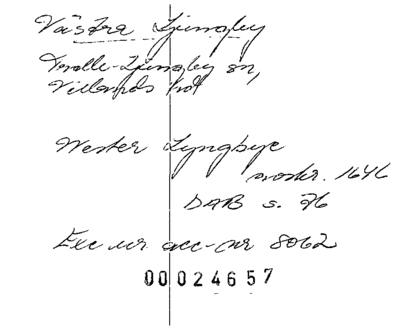 Västra Ljungby
Trolle-Ljungby sn,
Villands hd
Wester Lyngbye
1646
DAB s. 76
Exc ur acc-nr 8062
00024657